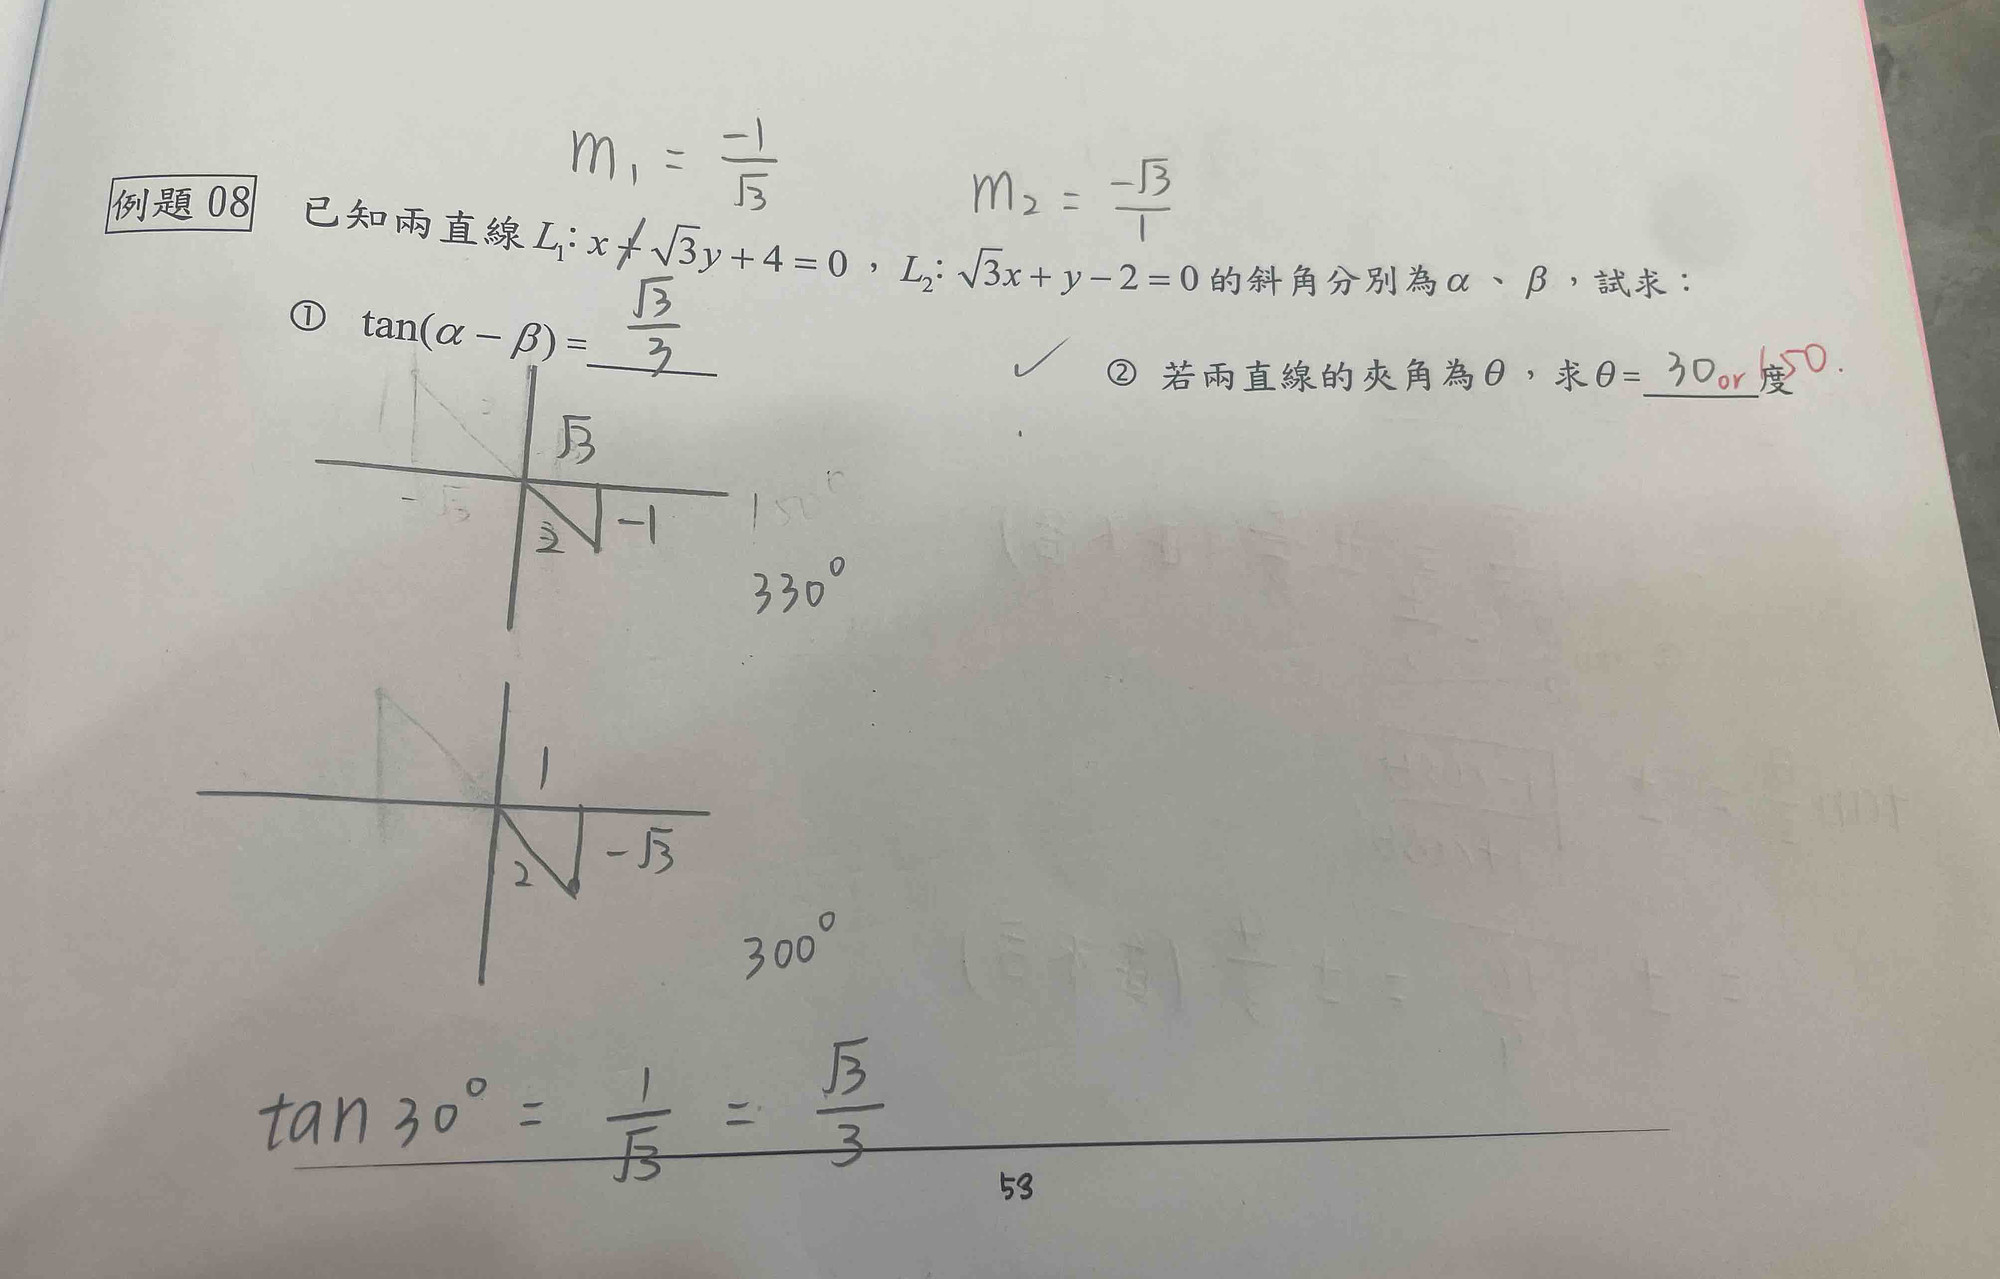 m₁ = -1/√3
m₂ = -√3/1
例題 08 已知兩直線 L₁: x + √3y + 4 = 0，L₂: √3x + y − 2 = 0 的斜角分別為 α、β，試求：
① tan(α − β) = √3/3
② 若兩直線的夾角為 θ，求 θ = 30 or 150. 度
√3
2
-1
-√3
330°
1
2
-√3
300°
tan 30° = 1/√3 = √3/3
53